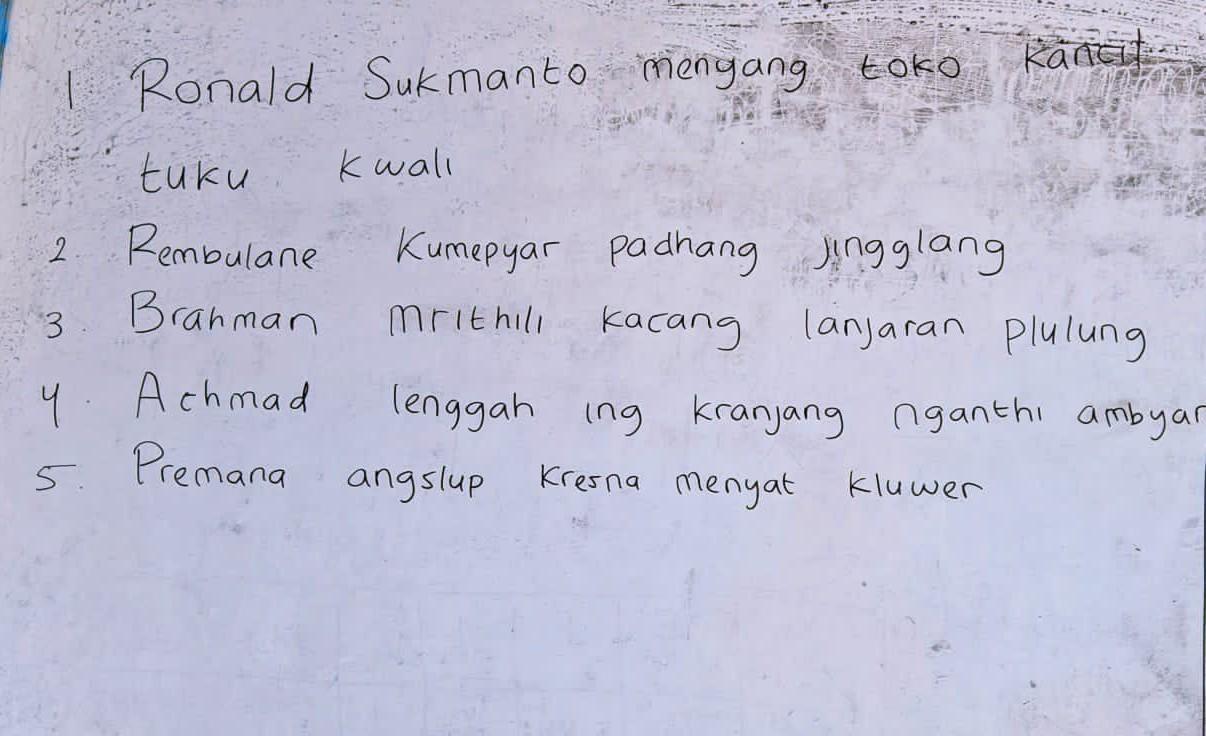 1 Ronald Sukmanto menyang toko kancit
tuku kwali
2. Rembulane kumepyar padhang jingglang
3. Brahman mrithili kacang lanjaran plulung
4. Achmad lenggah ing kranjang nganthi ambyar
5. Premana angslup kresna menyat kluwer